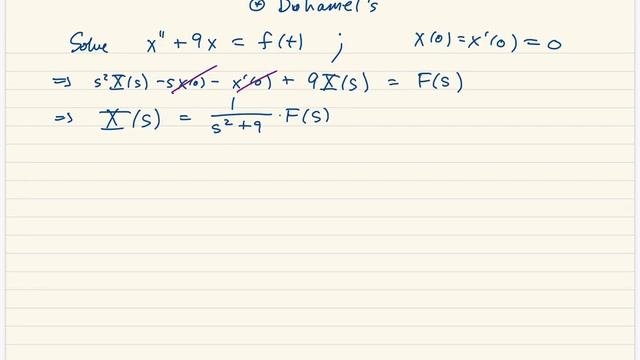 ⊛ Dohamel's
Solve x'' + 9x = f(t) ; x(0) = x'(0) = 0
⇒ s²X(s) - sx(0) - x'(0) + 9X(s) = F(s)
⇒ X(s) = 1/(s² + 9) · F(s)